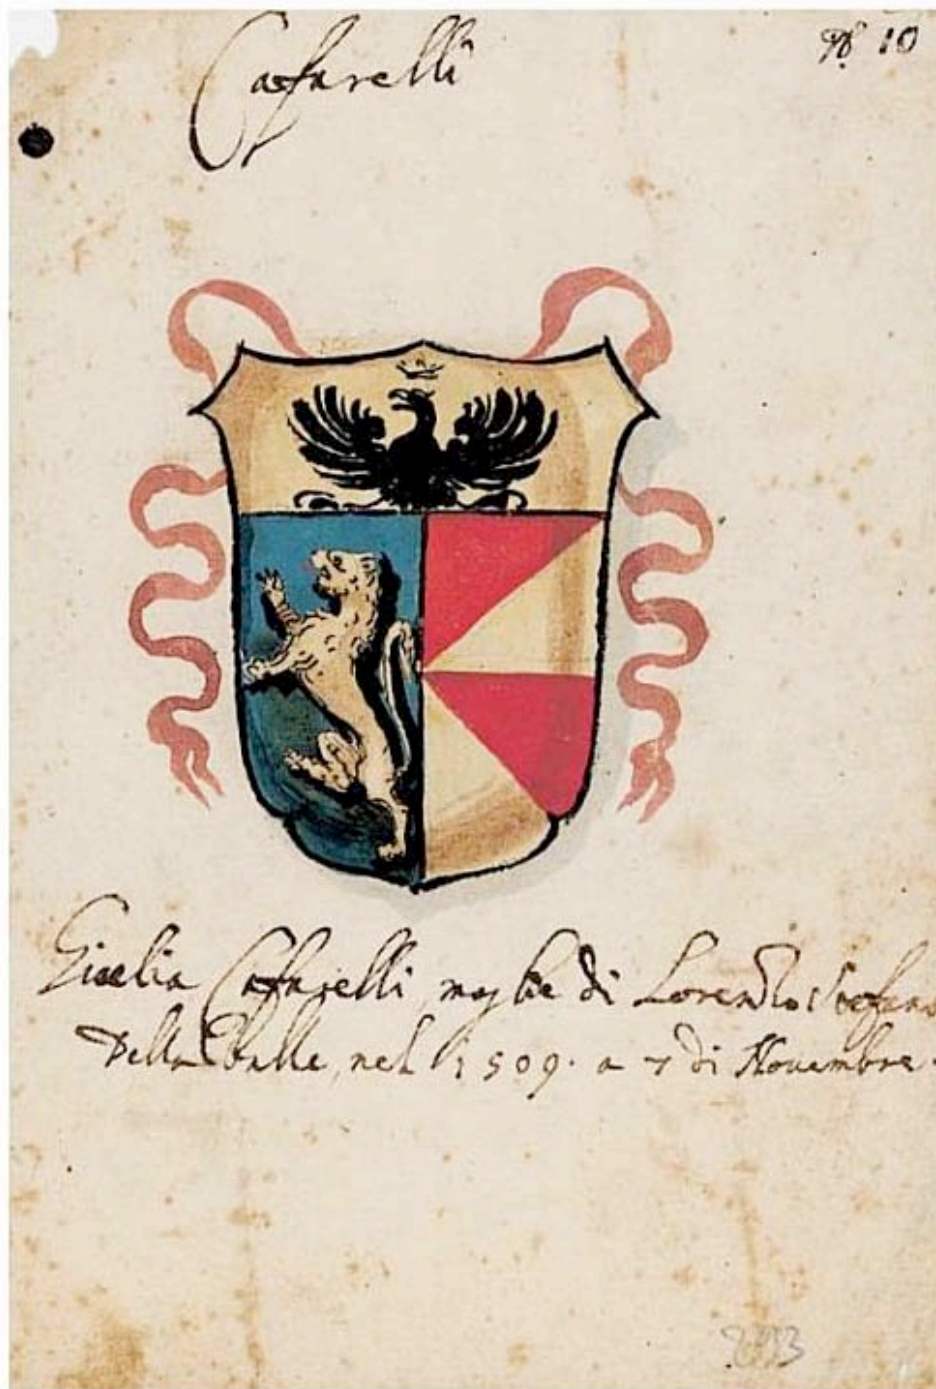 Caffarelli
N. 10
Giulia Caffarelli moglie di Lorenzo Stefano
Della Valle, nel 1509. a 7 di Nouembre.